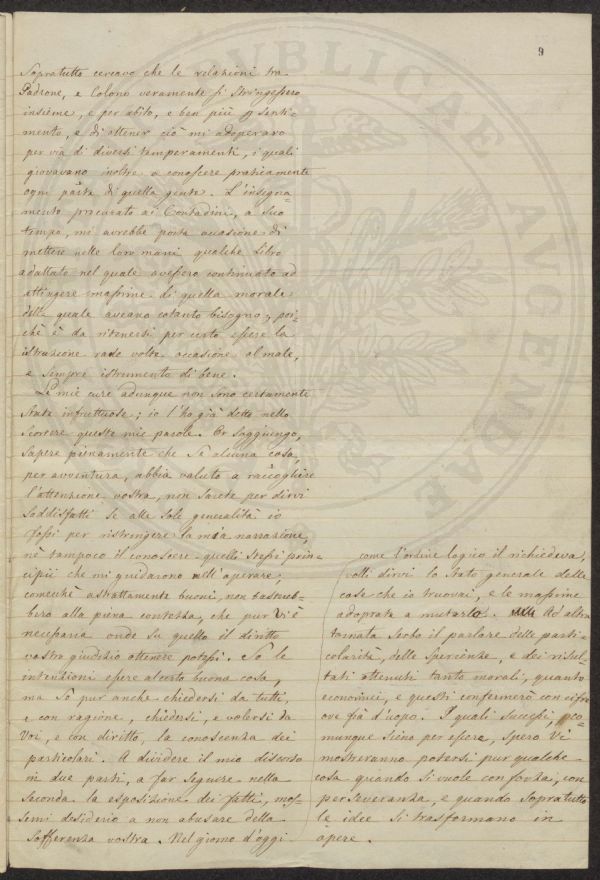 9
Sopratutto cercavo che le relazioni tra
Padrone, e Colono veramente si stringessero
insieme, e per abito, e ben più p senti=
mento, e di ottener ciò mi adoperavo
per via di diversi temperamenti, i quali
giovavano inoltre a conoscere praticamente
ogni parte di quella gente. L'insegna=
mento procurato ai Contadini, a suo
tempo, mi avrebbe porta occasione di
mettere nelle loro mani qualche libro
adattato nel quale avessero continuato ad
attingere massime di quella morale
della quale aveano cotanto bisogno; poi=
chè è da ritenersi per certo essere la
istruzione rade volte occasione al male,
e sempre istrumento di bene.
Le mie cure adunque non sono certamente
state infruttuose; io l'ho già detto nello
scorrere queste mie parole. Or soggiungo,
sapere pienamente che se alcuna cosa,
per avventura, abbia valuto a raccogliere
l'attenzione vostra, non sarete per dirvi
soddisfatti se alle sole generalità io
fossi per ristringere la mia narrazione,
nè tampoco il conoscere quelli stessi prin=
cipii che mi guidarono nell'operare;
comechè astrattamente buoni, non bastereb=
bero alla piena contezza, che pur vi è
necessaria onde su quello il diritto
vostro giudizio ottenere potessi. So le
intenzioni essere al certo buona cosa,
ma so pur anche chiedersi da tutti,
e con ragione, chiedersi, e volersi da
Voi, e con diritto, la conoscenza dei
particolari. A dividere il mio discorso
in due parti, a far seguire nella
seconda la esposizione dei fatti, mos=
semi desiderio a non abusare della
sofferenza vostra. Nel giorno d'oggi
come l'ordine logico il richiedeva,
volli dirvi lo stato generale delle
cose che io trovai, e le massime
adoprate a mutarlo. Ad altra
tornata serbo il parlare delle parti=
colarità, delle sperienze, e dei risul=
tati ottenuti tanto morali, quanto
economici, e questi confermerò con cifre
ove fia d'uopo. I quali successi, co=
munque sieno per essere, spero Vi
mostreranno potersi pur qualche
cosa quando si vuole con forza, con
perseveranza, e quando sopratutto
le idee si trasformano in
opere.
PVBLICAE